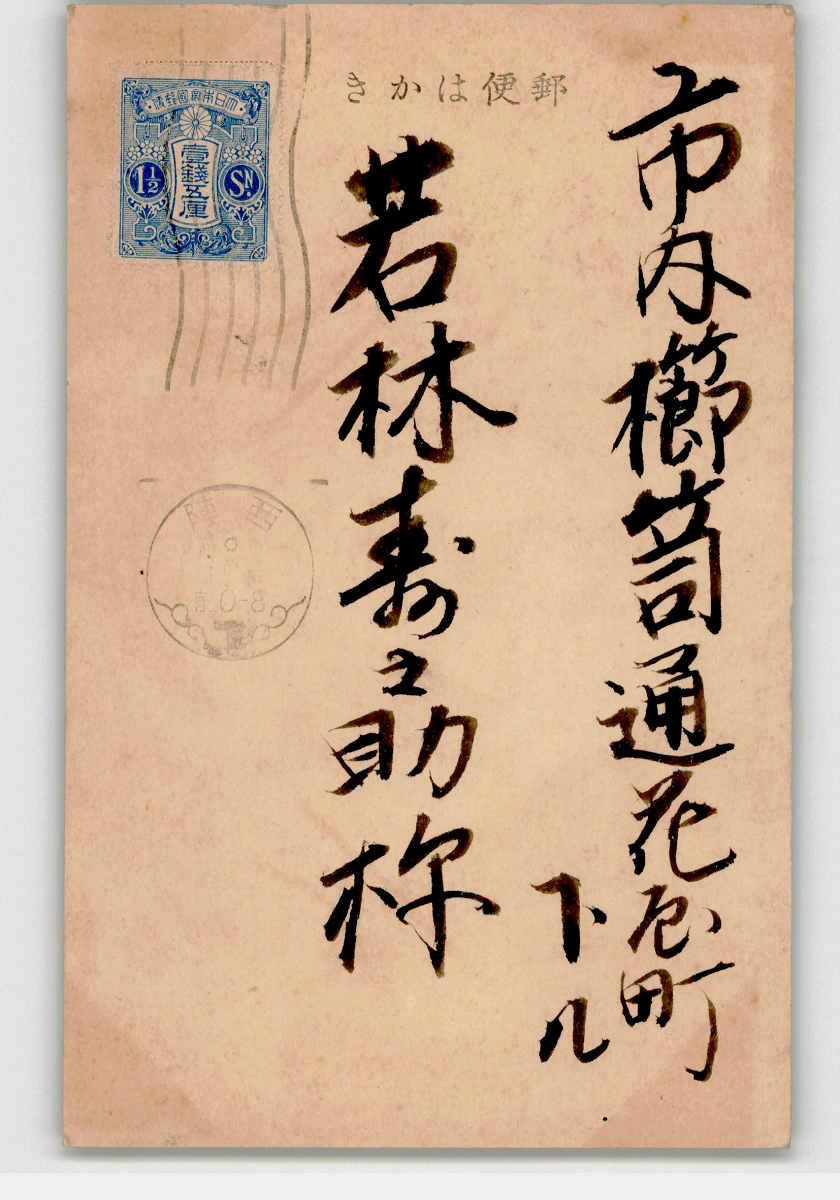 郵便はかき
大日本帝國郵便
壹錢五厘
1½
Sn.
市内櫛笥通花屋町
下ル
若林寿之助様
西陣
0-8